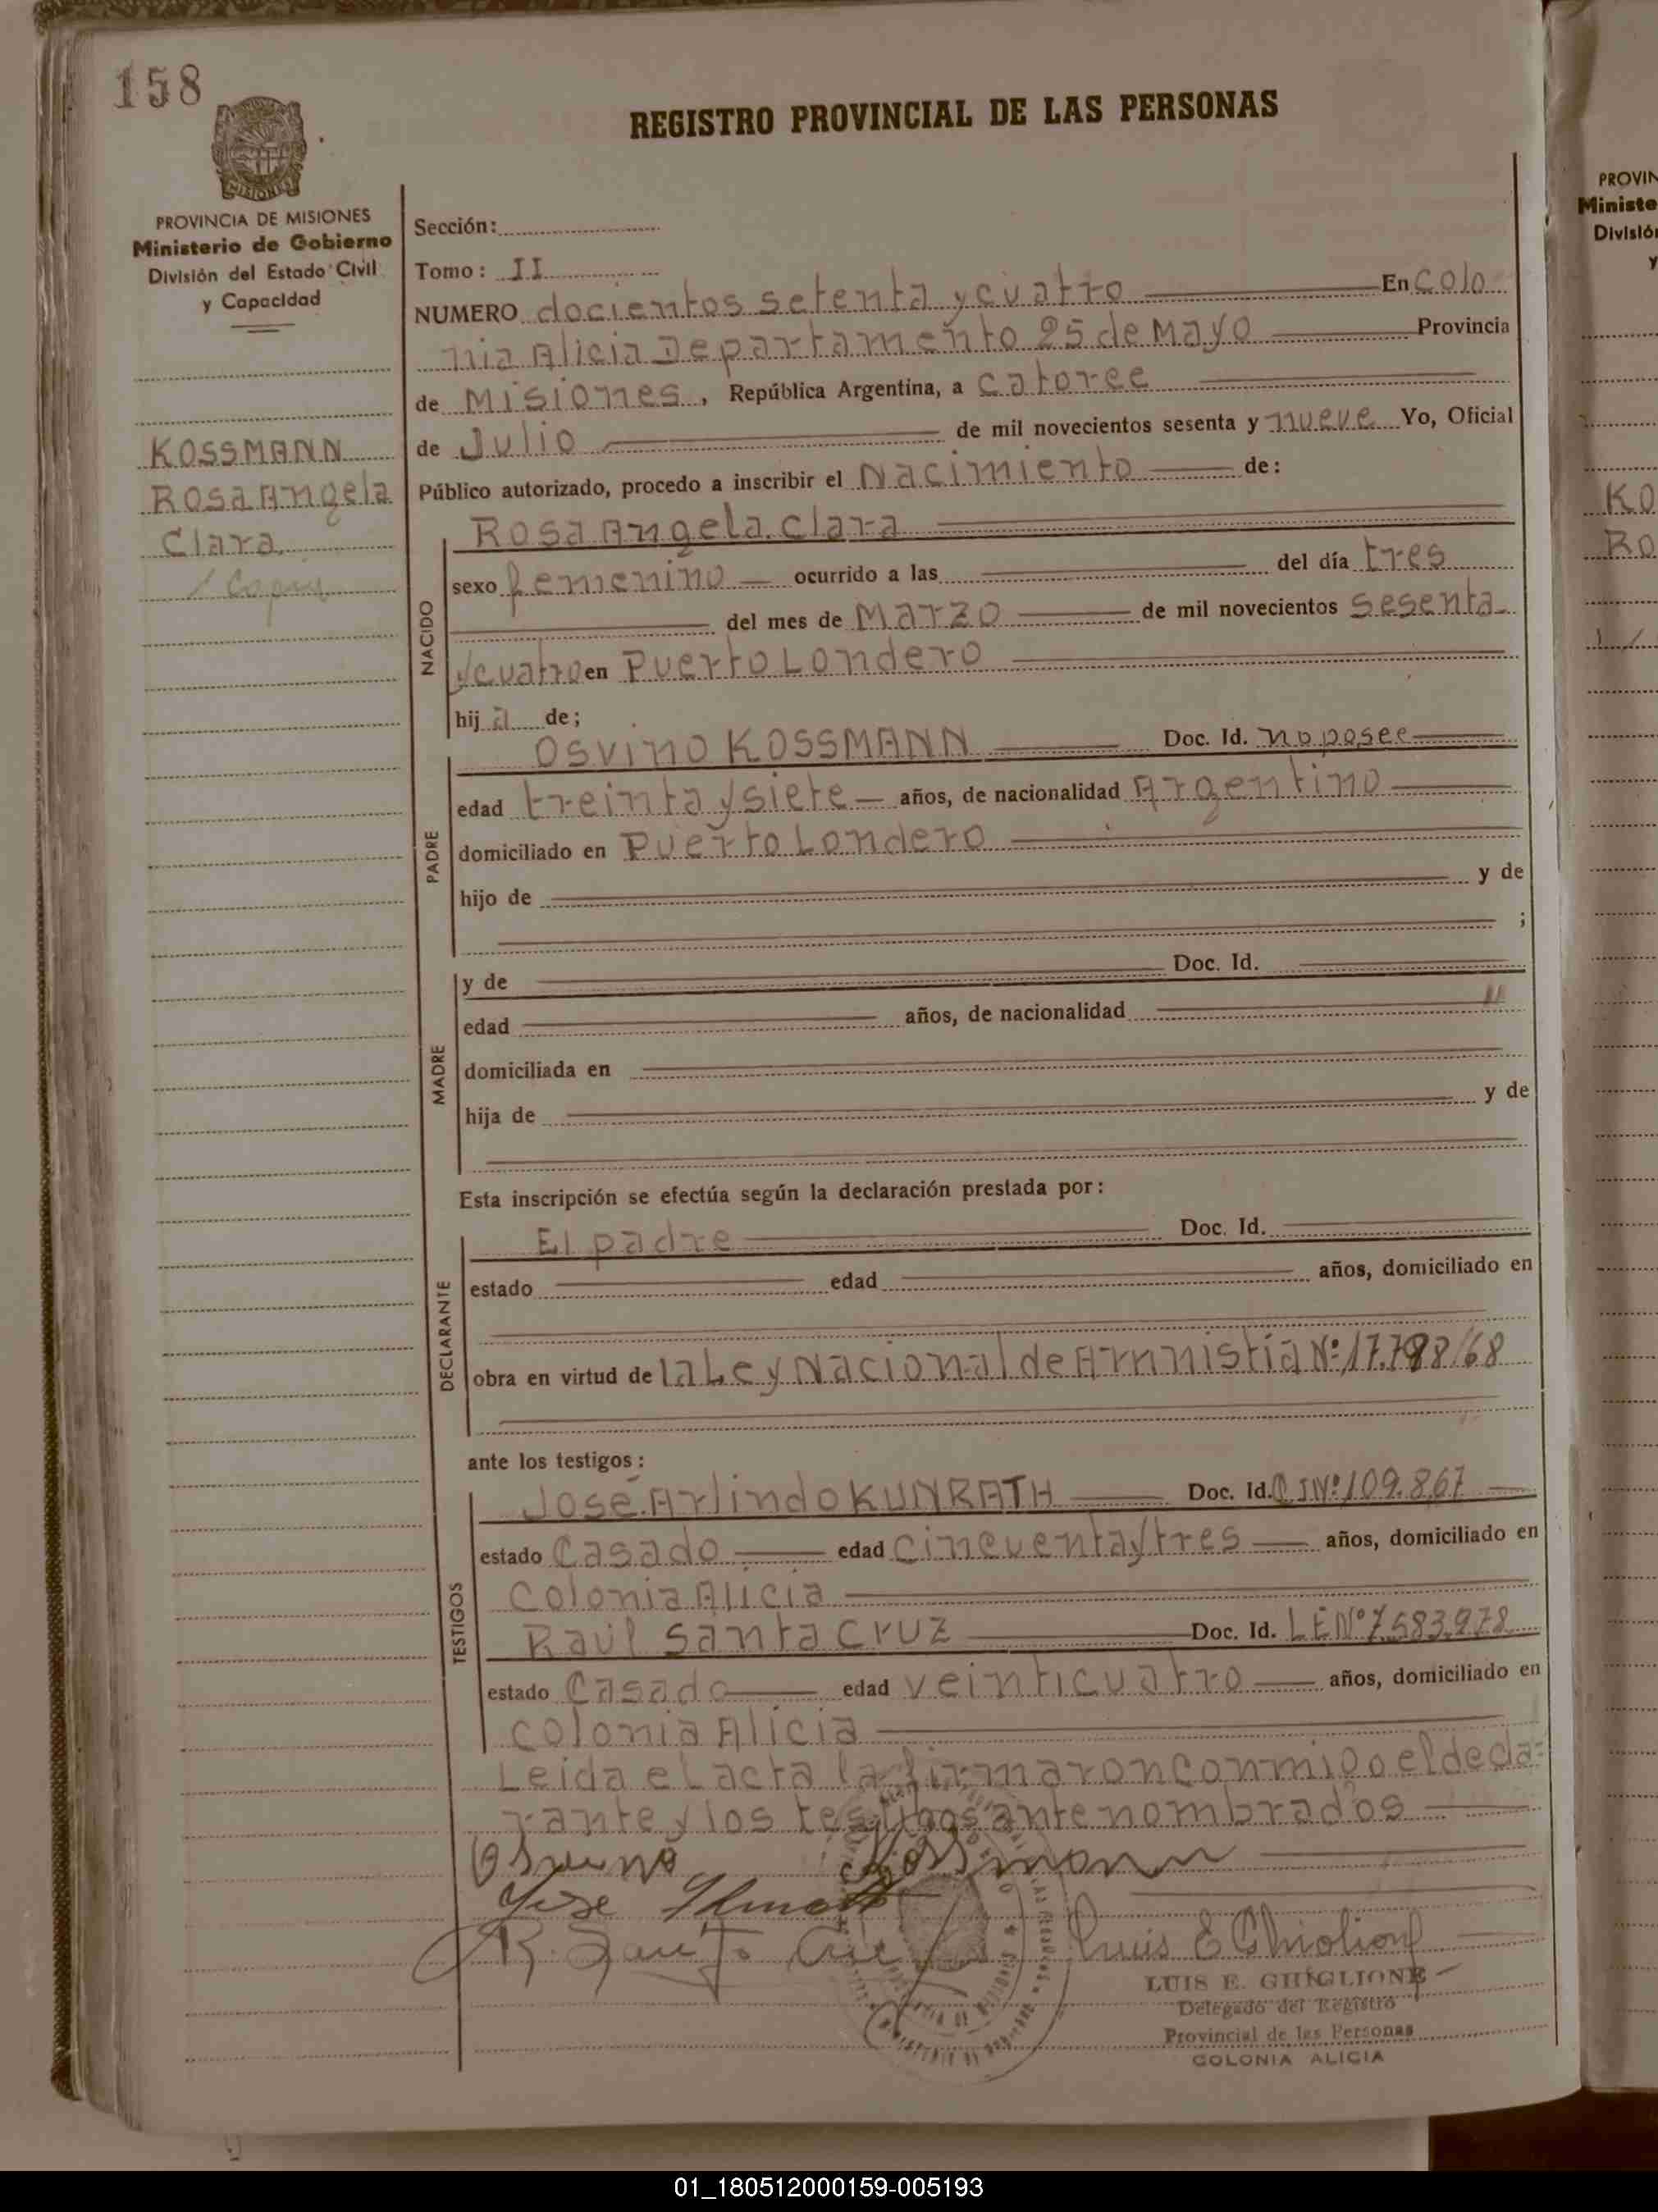 158
REGISTRO PROVINCIAL DE LAS PERSONAS
PROVINCIA DE MISIONES
Ministerio de Gobierno
División del Estado Civil
y Capacidad
KOSSMANN
Rosa Angela
Clara
1 Copia
Sección:
Tomo: II
NUMERO docientos setenta y cuatro En Colo
nia Alicia Departamento 25 de Mayo Provincia
de Misiones, República Argentina, a catorce
de Julio de mil novecientos sesenta y nueve Yo, Oficial
Público autorizado, procedo a inscribir el Nacimiento de:
NACIDO
Rosa Angela Clara
sexo femenino ocurrido a las del día tres
del mes de Marzo de mil novecientos sesenta
y cuatro en Puerto Londero
hija de;
PADRE
OSVINO KOSSMANN Doc. Id. no posee
edad treinta y siete años, de nacionalidad Argentino
domiciliado en Puerto Londero
hijo de y de
;
MADRE
y de Doc. Id.
edad años, de nacionalidad
domiciliada en
hija de y de
Esta inscripción se efectúa según la declaración prestada por:
DECLARANTE
El padre Doc. Id.
estado edad años, domiciliado en
obra en virtud de la Ley Nacional de Amnistía Nº 17.798/68
ante los testigos:
TESTIGOS
José Arlindo KUNRATH Doc. Id. CI Nº 109.867
estado Casado edad cincuenta y tres años, domiciliado en
Colonia Alicia
Raúl Santa Cruz Doc. Id. LE Nº 7.583.978
estado Casado edad veinticuatro años, domiciliado en
Colonia Alicia
Leida el acta la firmaron conmigo el decla-
rante y los testigos ante nombrados
Osvino Kossmann
Jose
R. Santa Cruz
Luis E Ghiglione
LUIS E. GHIGLIONE
Delegado del Registro
Provincial de las Personas
COLONIA ALICIA
PROVIN
Ministe
División
y
KO
Ro
01_180512000159-005193